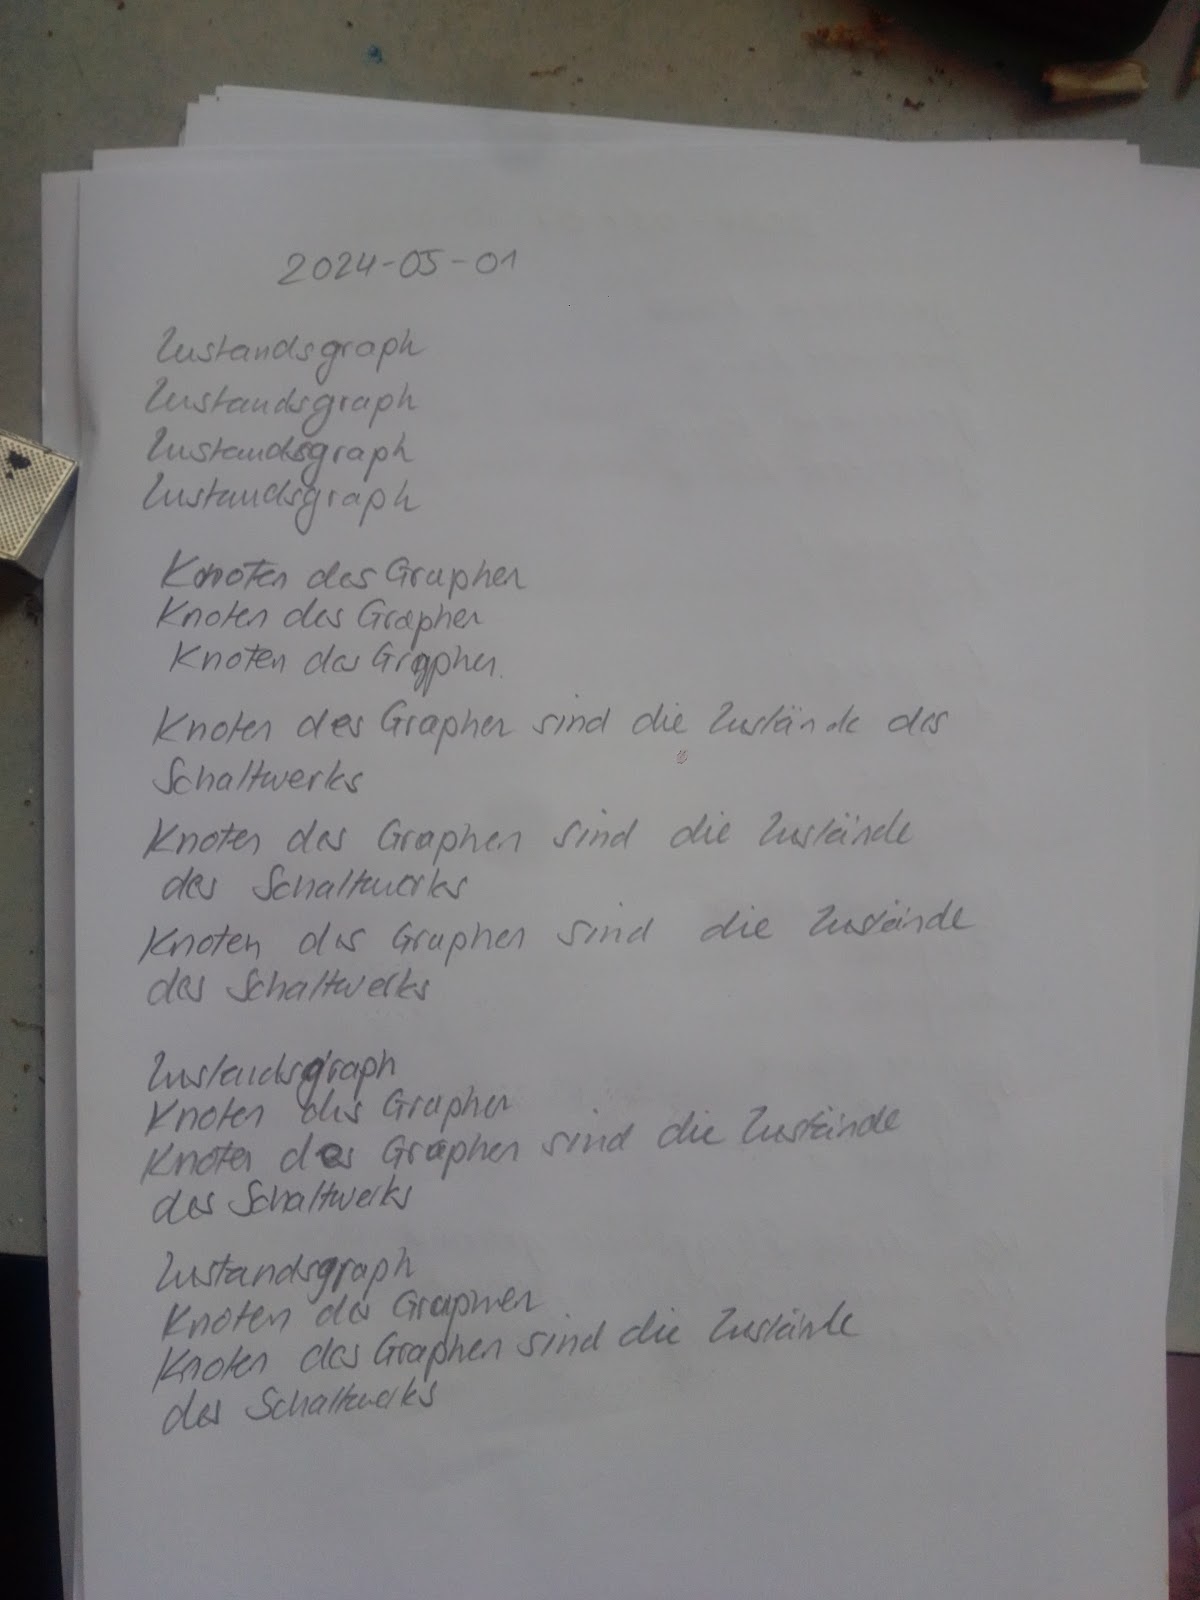 2024-05-01
Zustandsgraph
Zustandsgraph
Zustandsgraph
Zustandsgraph
Knoten des Graphen
Knoten des Graphen
Knoten des Graphen
Knoten des Graphen sind die Zustände des
Schaltwerks
Knoten des Graphen sind die Zustände
des Schaltwerks
Knoten des Graphen sind die Zustände
des Schaltwerks
Zustandsgraph
Knoten des Graphen
Knoten des Graphen sind die Zustände
des Schaltwerks
Zustandsgraph
Knoten des Graphen
Knoten des Graphen sind die Zustände
des Schaltwerks